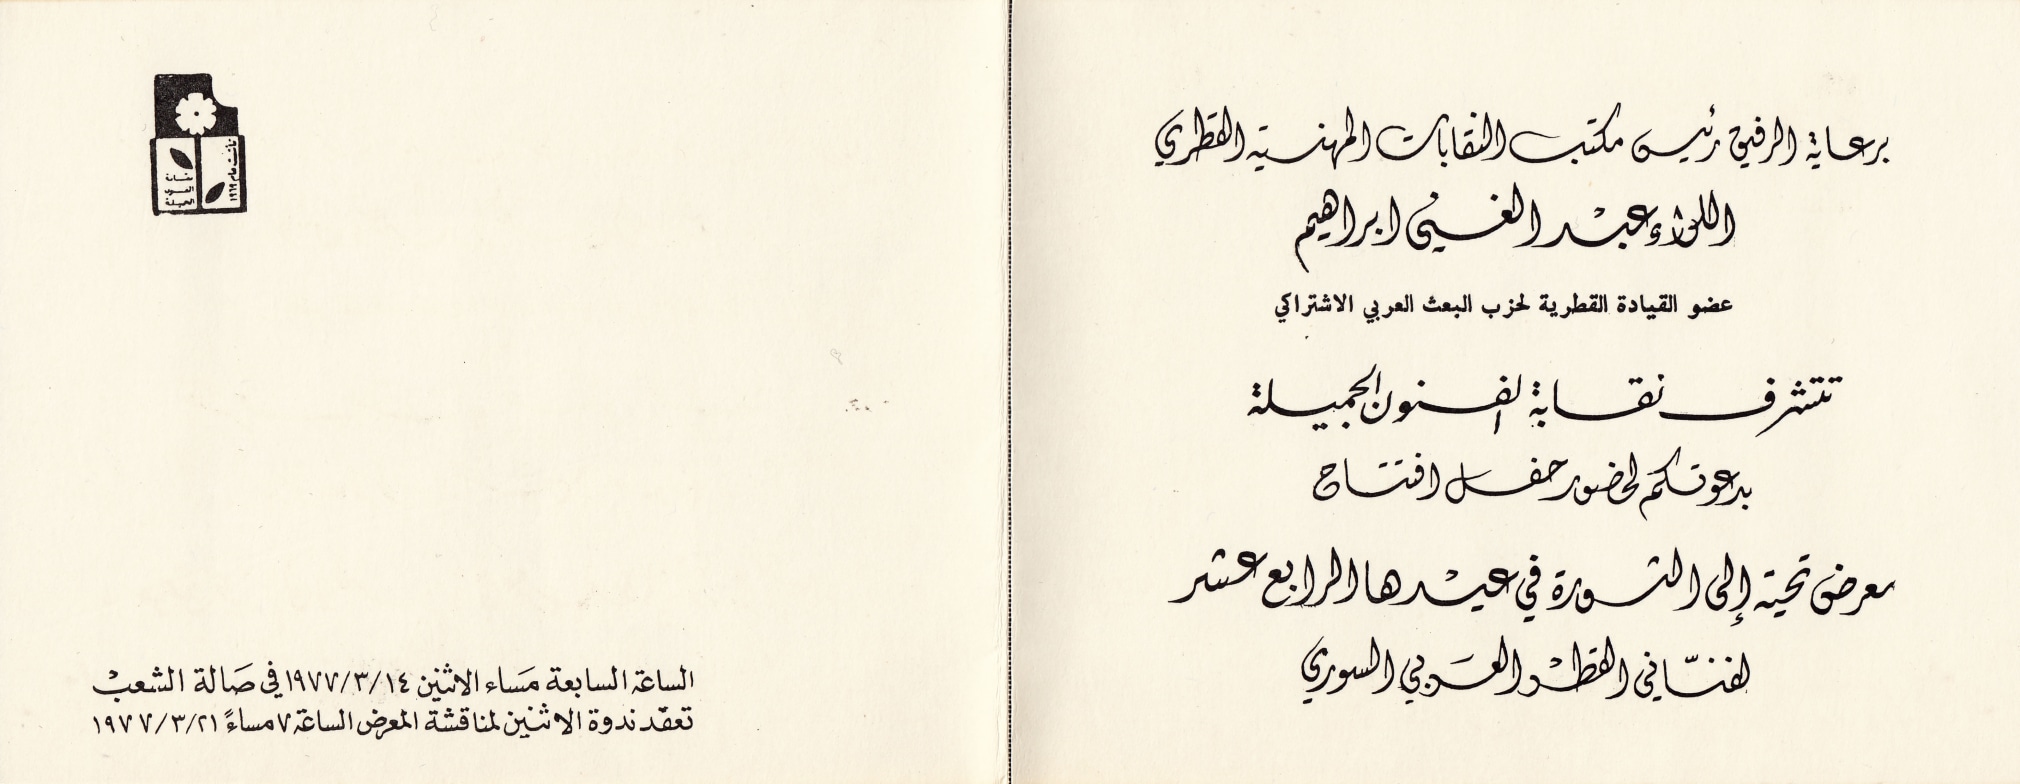 برعاية الرفيق رئيس مكتب النقابات المهنية القطري
اللواء عبد الغني ابراهيم
عضو القيادة القطرية لحزب البعث العربي الاشتراكي
تتشرف نقابة الفنون الجميلة
بدعوتكم لحضور حفل افتتاح
معرض تحية إلى الثورة في عيدها الرابع عشر
لفنّاني القطر العربي السوري
نقابة
الفنون
الجميلة
تأسست عام
١٩٦٩
الساعة السابعة مساء الاثنين ١٩٧٧/٣/١٤ في صالة الشعب
تعقد ندوة الاثنين لمناقشة المعرض الساعة ٧ مساءً ١٩٧٧/٣/٢١